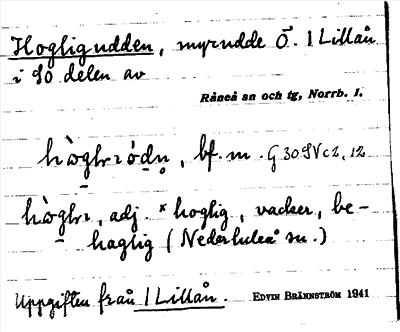 Hogligudden, myrudde Ö. 1 Lillån
i SO delen av
Råneå sn och tg, Norrb. l.
bf. m. G 30 SV c 2, 12
adj. x hoglig, vacker, be-
haglig (Nederluleå sn.)
Uppgiften från 1 Lillån. EDVIN BRÄNNSTRÖM 1941